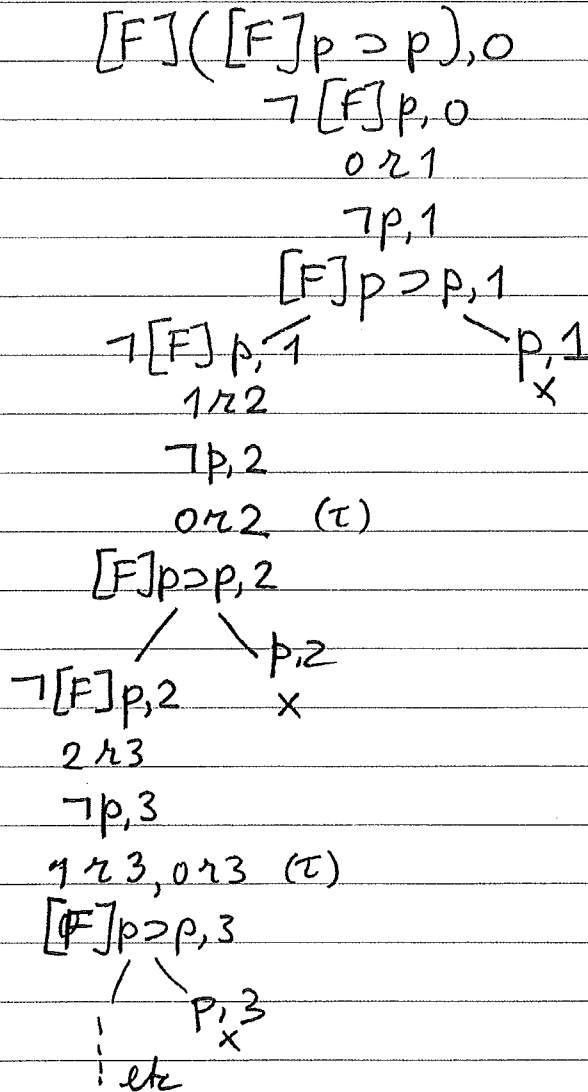 [F]([F]p ⊃ p), 0
¬[F]p, 0
0 r 1
¬p, 1
[F]p ⊃ p, 1
¬[F]p, 1 p, 1
1 r 2 ×
¬p, 2
0 r 2 (τ)
[F]p ⊃ p, 2
p, 2
¬[F]p, 2 ×
2 r 3
¬p, 3
1 r 3, 0 r 3 (τ)
[F]p ⊃ p, 3
p, 3
×
etc